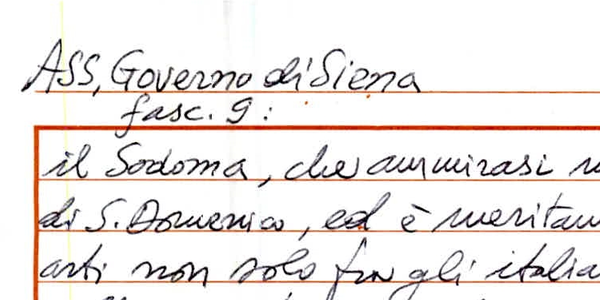 ASS, Governo di Siena
fasc. 9:
il Sodoma, che ammirasi
di S. Domenico, ed è meritam
arti non solo fra gli italia